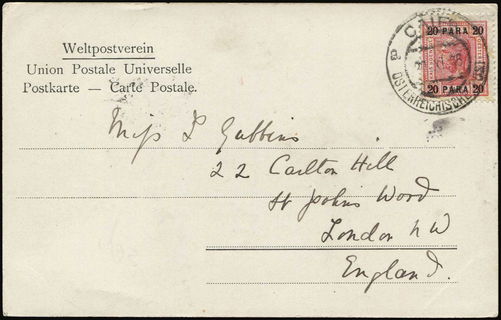 Weltpostverein
Union Postale Universelle
Postkarte — Carte Postale.
20 PARA 20
20 PARA 20
ÖSTERREICHISCHE
Miss L Gubbins
22 Carlton Hill
St Johns Wood
London N W
England.